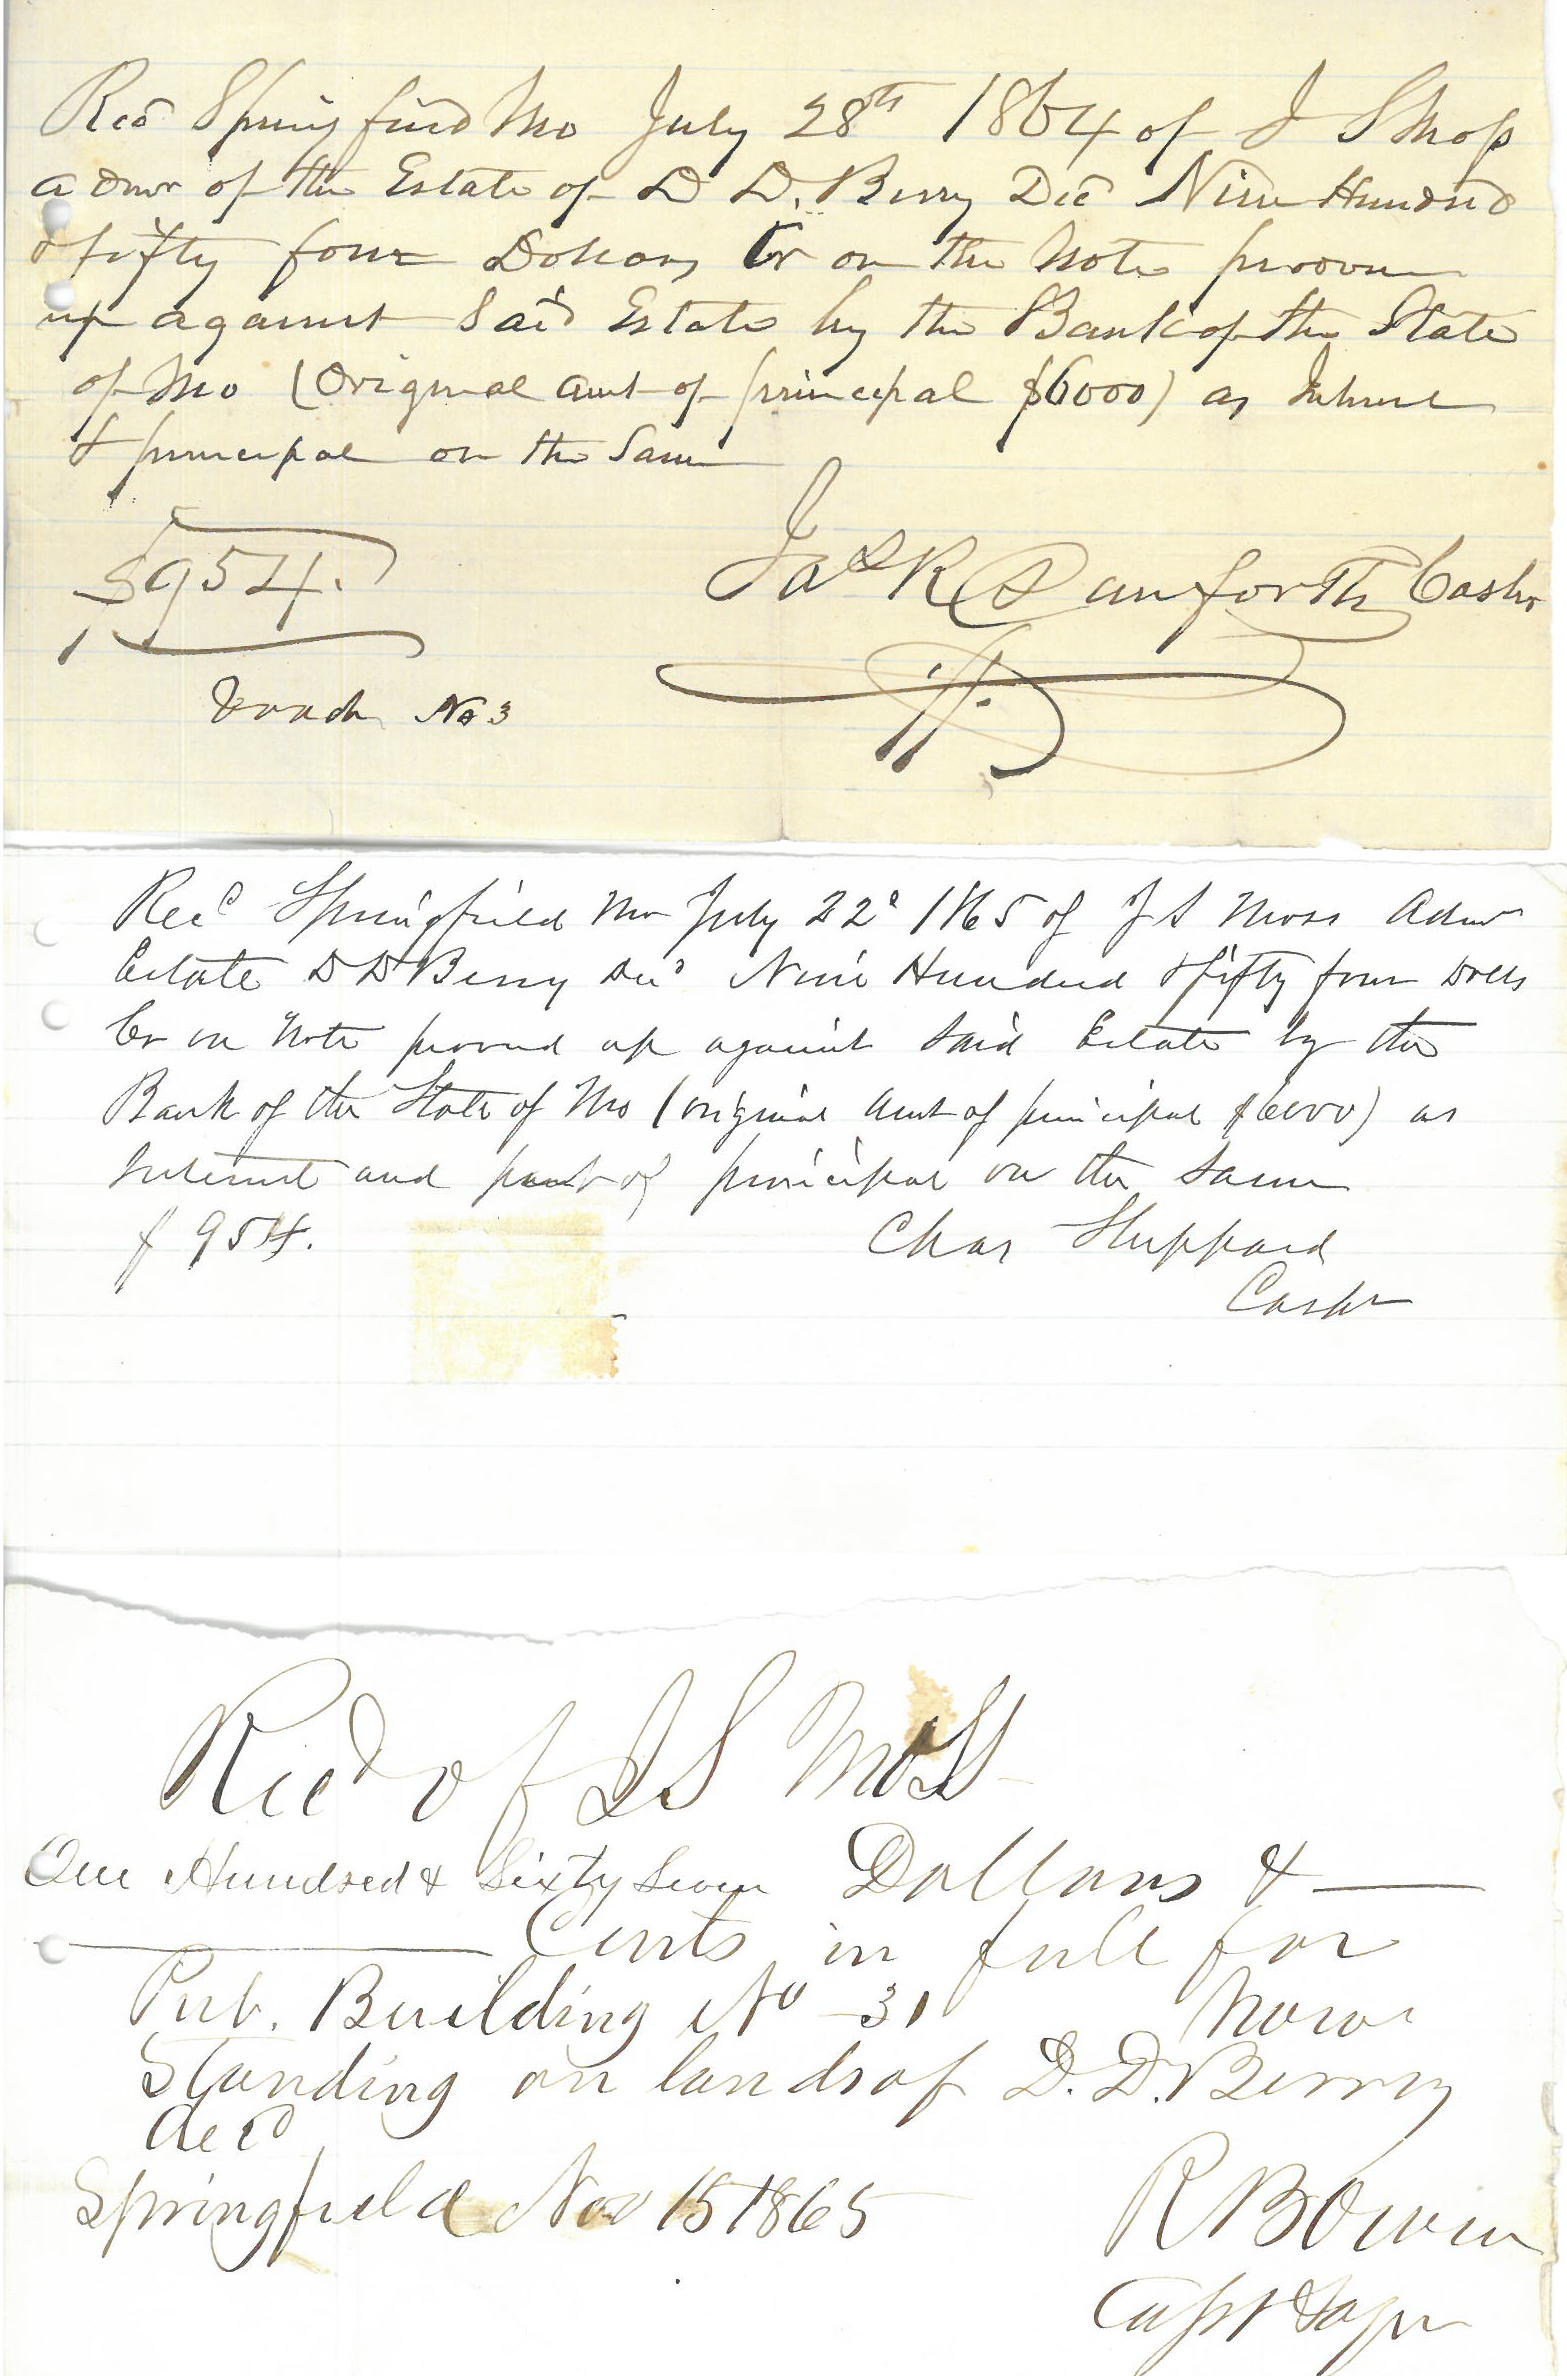 Recd Springfield Mo July 28th 1864 of J S Moss
admr of the Estate of D D. Berry Decd Nine Hundred
& fifty four Dollars Cr on the Note prooven
up against Said Estate by the Bank of the State
of Mo (Original amt of principal $6000) as Interest
& principal on the Same
$954.
Jas R Danforth Cashr
Vouch No 3
Recd Springfield Mo July 22d 1865 of J S Moss Admr
Estate D D Berry Decd Nine Hundred & fifty four Dolls
Cr on Note proved up against Said Estate by the
Bank of the State of Mo (original amt of principal $6000) as
Interest and part of principal on the Same
$954.
Chas Sheppard
Cashr
Recd of J S Moss
One Hundred & Sixty Seven Dollars &
Cents in full for
Pub. Building No 31 Now
Standing on lands of D. D. Berry
decd
Springfield Nov 15 1865
R B Owen
Capt